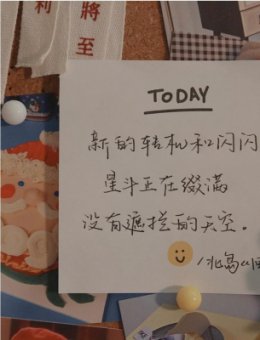 利
將
至
TODAY
新的转机和闪闪
星斗正在缀满
没有遮拦的天空。
/北岛《回